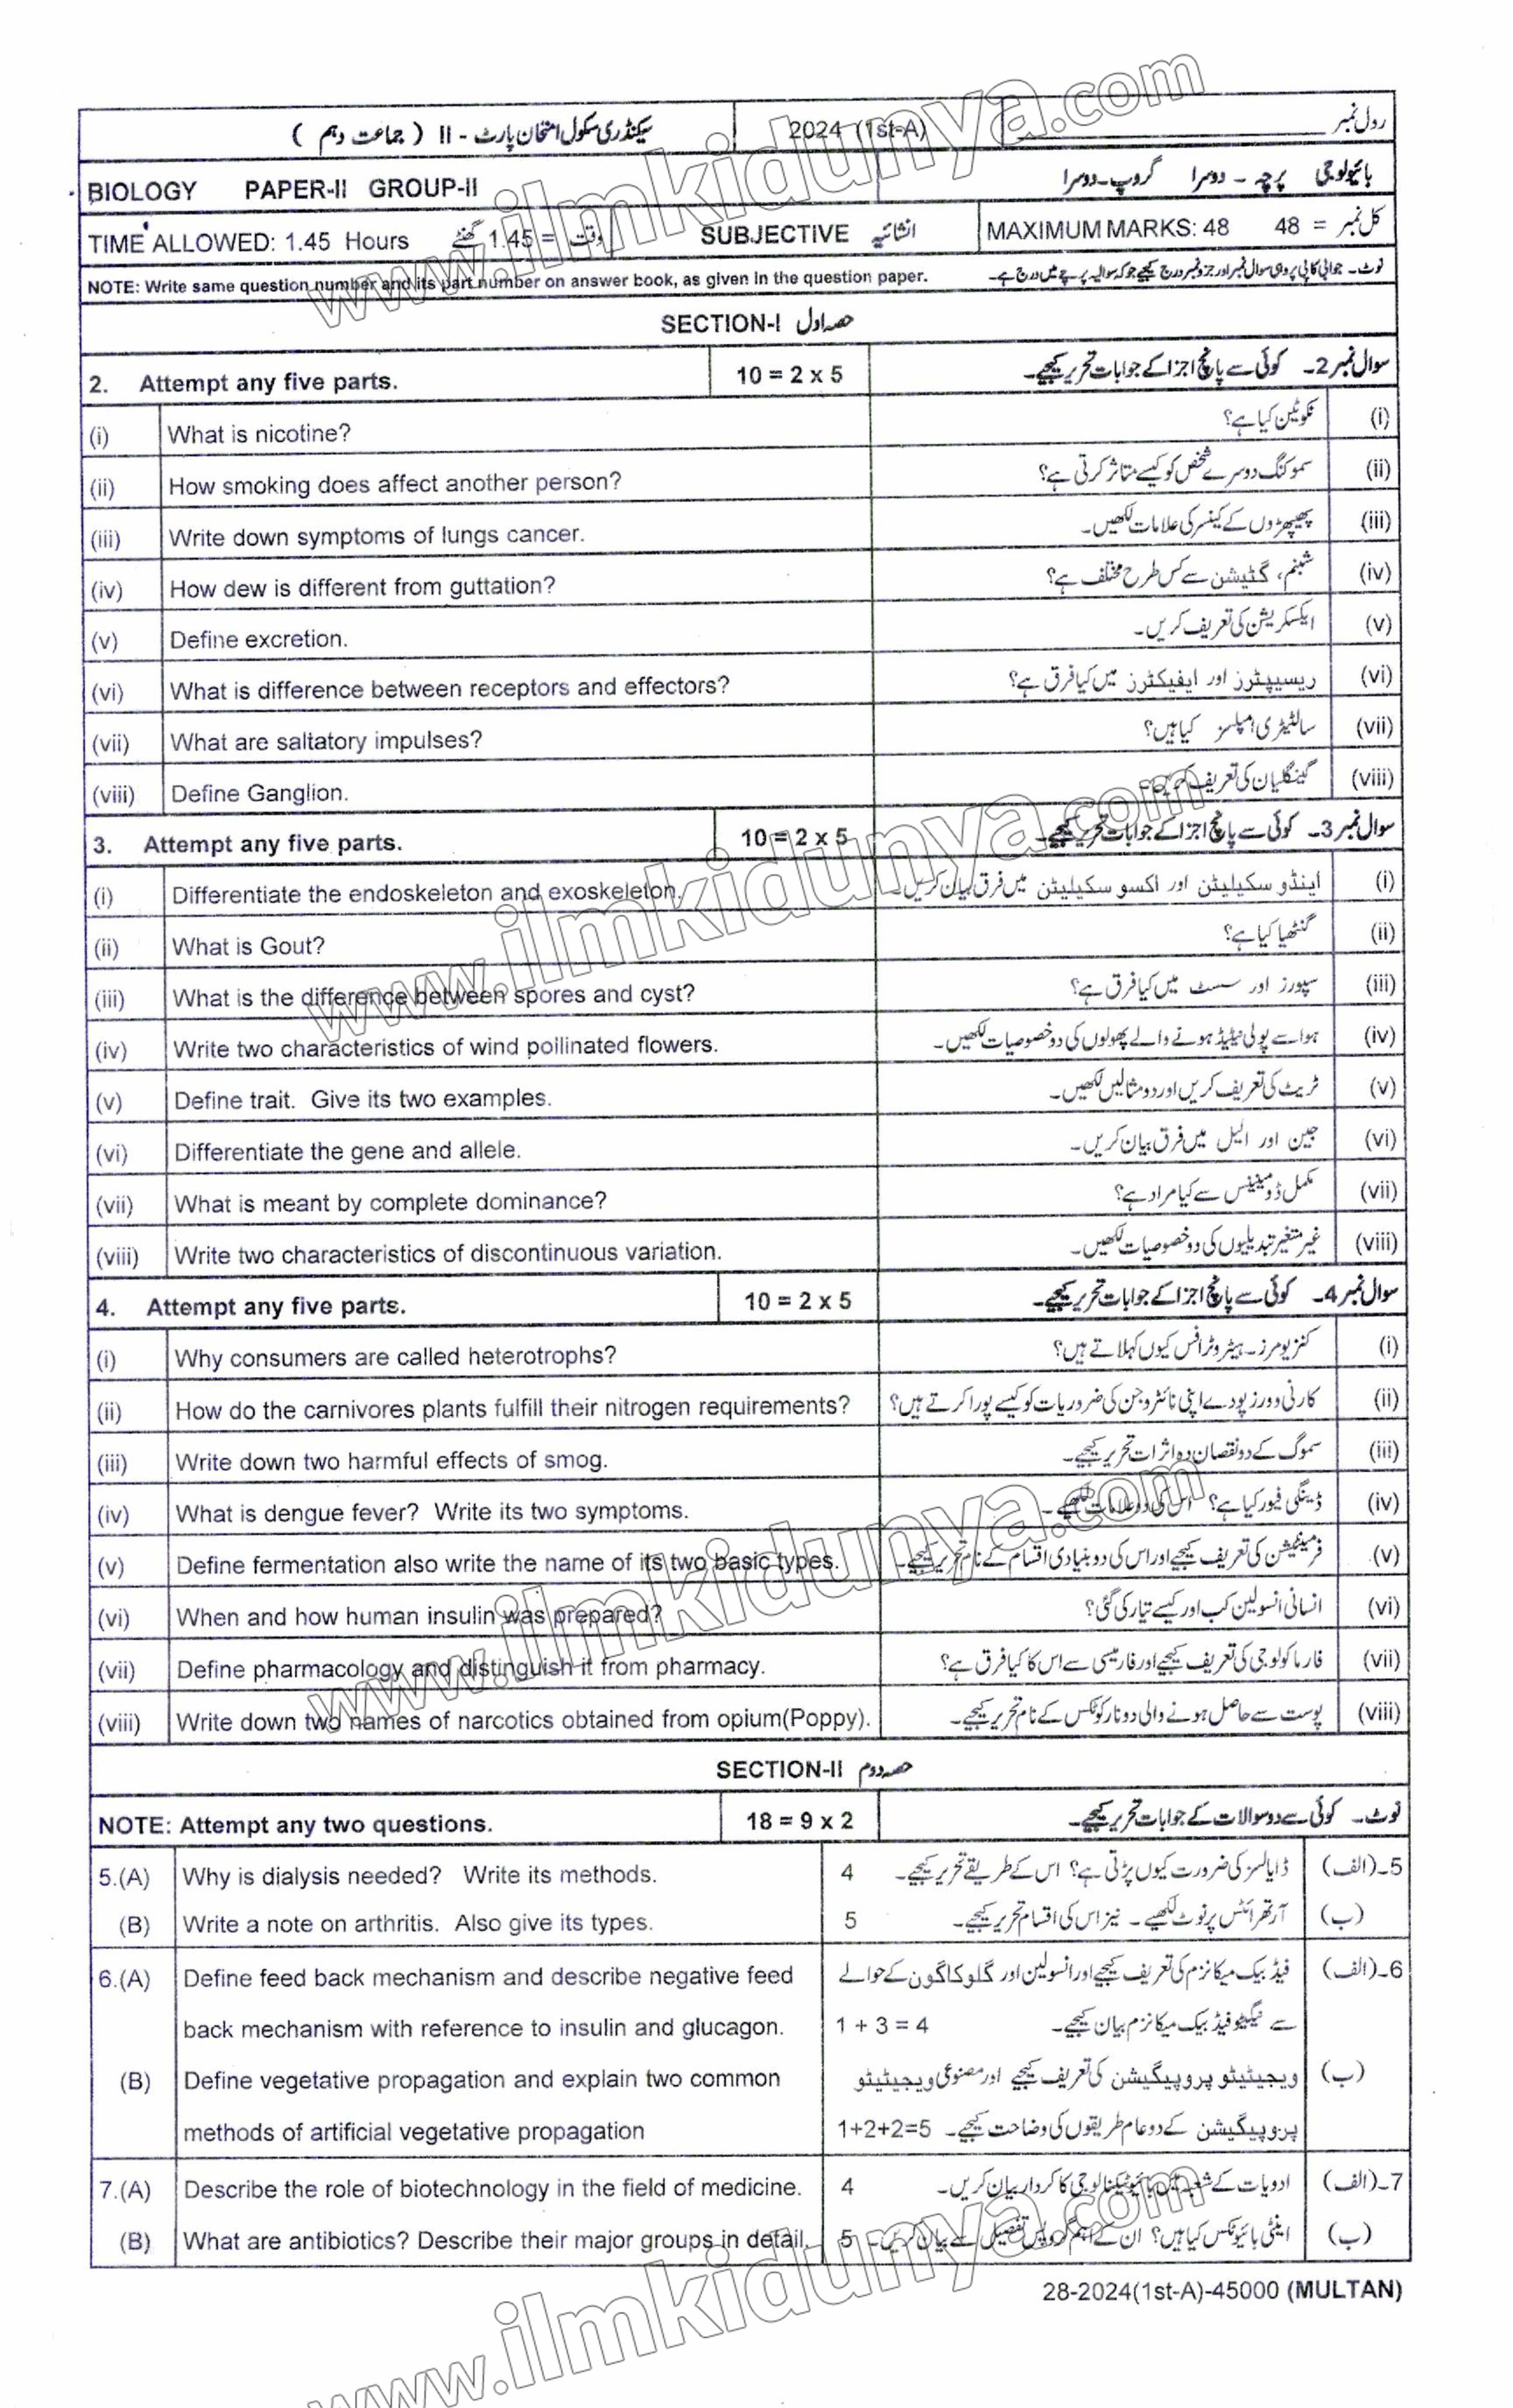 سیکنڈری سکول امتحان پارٹ - II ( جماعت دہم ) 2024 (1st-A) رول نمبر
BIOLOGY PAPER-II GROUP-II بائیولوجی پرچہ - دوسرا گروپ - دوسرا
TIME ALLOWED: 1.45 Hours وقت = 1.45 گھنٹے SUBJECTIVE انشائیہ MAXIMUM MARKS: 48 کل نمبر = 48
NOTE: Write same question number and its part number on answer book, as given in the question paper. نوٹ۔ جوابی کاپی پر وہی سوال نمبر اور جزو نمبر درج کیجیے جو کہ سوالیہ پرچے میں درج ہے۔
SECTION-I حصہ اول
2. Attempt any five parts. 10 = 2 x 5 سوال نمبر 2۔ کوئی سے پانچ اجزا کے جوابات تحریر کیجیے۔
(i) What is nicotine? نکوٹین کیا ہے؟ (i)
(ii) How smoking does affect another person? سموکنگ دوسرے شخص کو کیسے متاثر کرتی ہے؟ (ii)
(iii) Write down symptoms of lungs cancer. پھیپھڑوں کے کینسر کی علامات لکھیں۔ (iii)
(iv) How dew is different from guttation? شبنم، گٹیشن سے کس طرح مختلف ہے؟ (iv)
(v) Define excretion. ایکسکریشن کی تعریف کریں۔ (v)
(vi) What is difference between receptors and effectors? ریسیپٹرز اور ایفیکٹرز میں کیا فرق ہے؟ (vi)
(vii) What are saltatory impulses? سالٹیٹری امپلسز کیا ہیں؟ (vii)
(viii) Define Ganglion. گینگلیان کی تعریف کریں۔ (viii)
3. Attempt any five parts. 10 = 2 x 5 سوال نمبر 3۔ کوئی سے پانچ اجزا کے جوابات تحریر کیجیے۔
(i) Differentiate the endoskeleton and exoskeleton. اینڈو سکیلیٹن اور اکسو سکیلیٹن میں فرق بیان کریں۔ (i)
(ii) What is Gout? گنٹھیا کیا ہے؟ (ii)
(iii) What is the difference between spores and cyst? سپورز اور سسٹ میں کیا فرق ہے؟ (iii)
(iv) Write two characteristics of wind pollinated flowers. ہوا سے پولی نیٹیڈ ہونے والے پھولوں کی دو خصوصیات لکھیں۔ (iv)
(v) Define trait. Give its two examples. ٹریٹ کی تعریف کریں اور دو مثالیں لکھیں۔ (v)
(vi) Differentiate the gene and allele. جین اور الیل میں فرق بیان کریں۔ (vi)
(vii) What is meant by complete dominance? مکمل ڈومیننس سے کیا مراد ہے؟ (vii)
(viii) Write two characteristics of discontinuous variation. غیر متغیر تبدیلیوں کی دو خصوصیات لکھیں۔ (viii)
4. Attempt any five parts. 10 = 2 x 5 سوال نمبر 4۔ کوئی سے پانچ اجزا کے جوابات تحریر کیجیے۔
(i) Why consumers are called heterotrophs? کنزیومرز۔ ہیٹروٹرافس کیوں کہلاتے ہیں؟ (i)
(ii) How do the carnivores plants fulfill their nitrogen requirements? کارنی وورز پودے اپنی نائٹروجن کی ضروریات کو کیسے پورا کرتے ہیں؟ (ii)
(iii) Write down two harmful effects of smog. سموگ کے دو نقصان دہ اثرات تحریر کیجیے۔ (iii)
(iv) What is dengue fever? Write its two symptoms. ڈینگی فیور کیا ہے؟ اس کی دو علامات لکھیے۔ (iv)
(v) Define fermentation also write the name of its two basic types. فرمنٹیشن کی تعریف کیجیے اور اس کی دو بنیادی اقسام کے نام تحریر کیجیے۔ (v)
(vi) When and how human insulin was prepared? انسانی انسولین کب اور کیسے تیار کی گئی؟ (vi)
(vii) Define pharmacology and distinguish it from pharmacy. فارماکولوجی کی تعریف کیجیے اور فارمیسی سے اس کا کیا فرق ہے؟ (vii)
(viii) Write down two names of narcotics obtained from opium(Poppy). پوست سے حاصل ہونے والی دو نارکوٹکس کے نام تحریر کیجیے۔ (viii)
SECTION-II حصہ دوم
NOTE: Attempt any two questions. 18 = 9 x 2 نوٹ۔ کوئی سے دو سوالات کے جوابات تحریر کیجیے۔
5.(A) Why is dialysis needed? Write its methods. 4 ڈایالسز کی ضرورت کیوں پڑتی ہے؟ اس کے طریقے تحریر کیجیے۔ 5۔(الف)
(B) Write a note on arthritis. Also give its types. 5 آرتھرائٹس پر نوٹ لکھیے۔ نیز اس کی اقسام تحریر کیجیے۔ (ب)
6.(A) Define feed back mechanism and describe negative feed فیڈ بیک میکانزم کی تعریف کیجیے اور انسولین اور گلوکاگون کے حوالے 6۔(الف)
back mechanism with reference to insulin and glucagon. 1 + 3 = 4 سے نیگیٹو فیڈ بیک میکانزم بیان کیجیے۔
(B) Define vegetative propagation and explain two common ویجیٹیٹو پروپیگیشن کی تعریف کیجیے اور مصنوعی ویجیٹیٹو (ب)
methods of artificial vegetative propagation 1+2+2=5 پروپیگیشن کے دو عام طریقوں کی وضاحت کیجیے۔
7.(A) Describe the role of biotechnology in the field of medicine. 4 ادویات کے شعبہ میں بائیوٹیکنالوجی کا کردار بیان کریں۔ 7۔(الف)
(B) What are antibiotics? Describe their major groups in detail. 5 اینٹی بائیوٹکس کیا ہیں؟ ان کے اہم گروپس تفصیل سے بیان کریں۔ (ب)
28-2024(1st-A)-45000 (MULTAN)
www.ilmkidunya.com
www.ilmkidunya.com
www.ilmkidunya.com
www.ilmkidunya.com